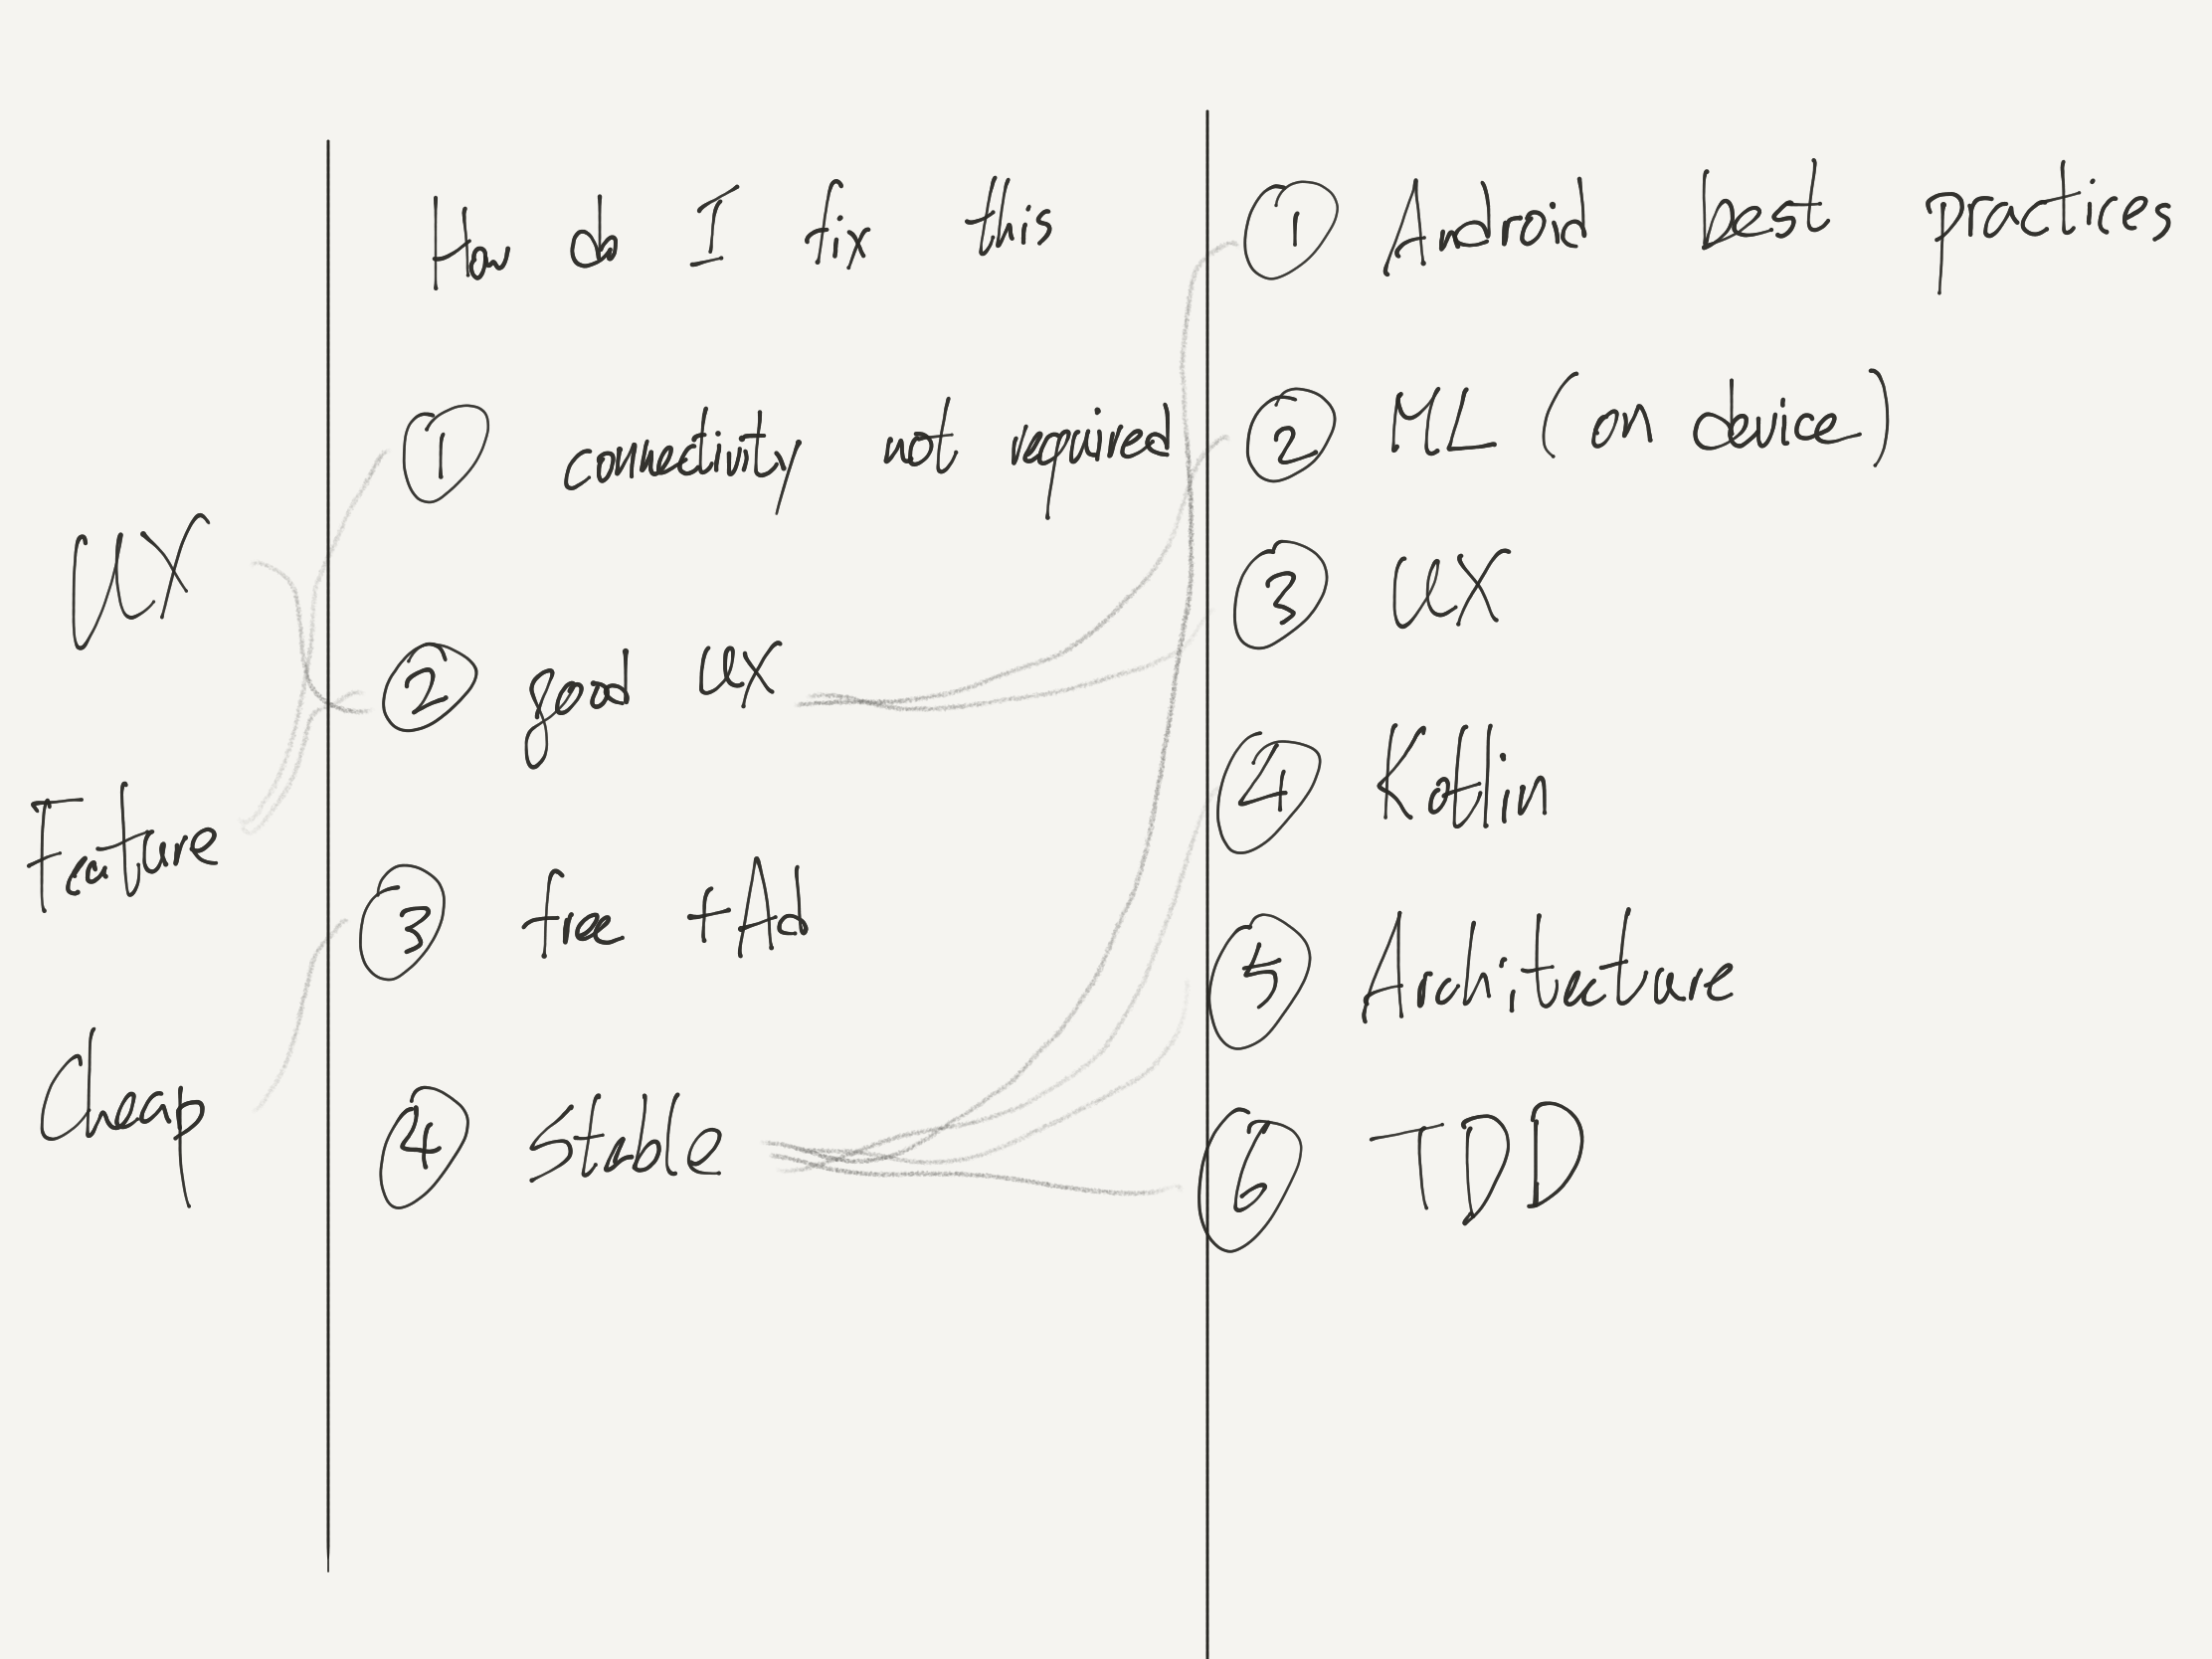 UX
Feature
Cheap
How do I fix this
① connectivity not required
② good UX
③ free + Ad
④ Stable
① Android best practices
② ML (on device)
③ UX
④ Kotlin
⑤ Architecture
⑥ TDD